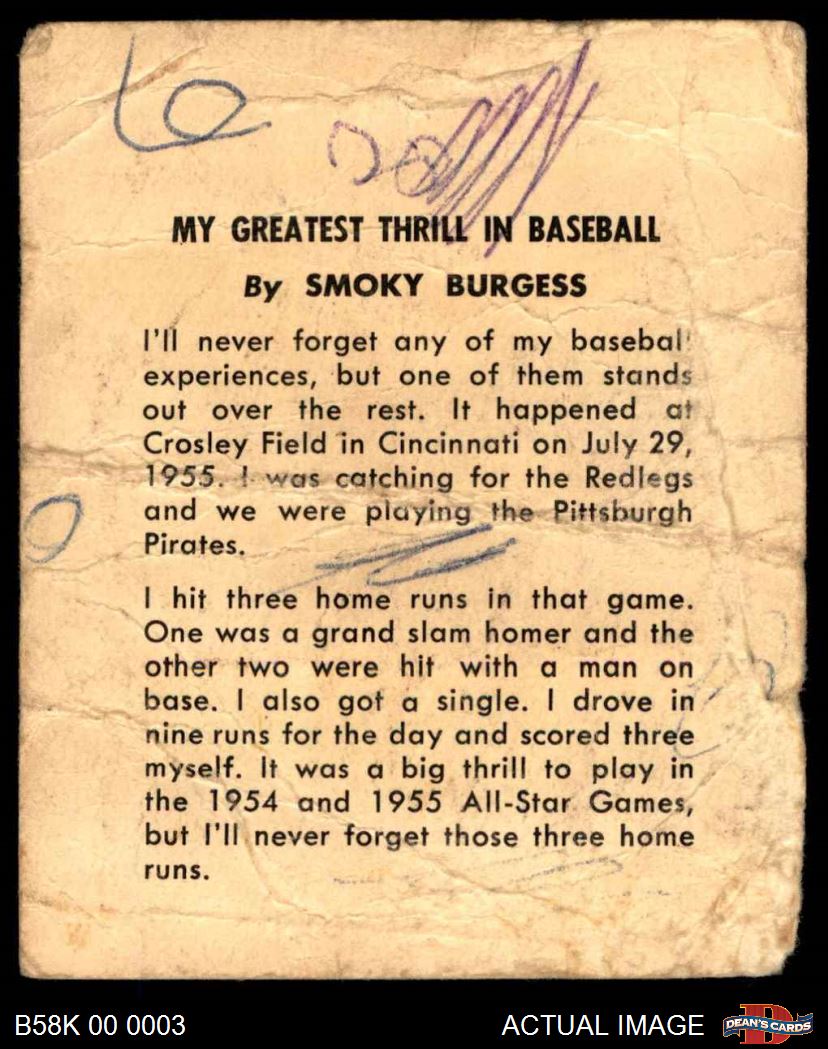 MY GREATEST THRILL IN BASEBALL
By SMOKY BURGESS
I'll never forget any of my baseball
experiences, but one of them stands
out over the rest. It happened at
Crosley Field in Cincinnati on July 29,
1955. I was catching for the Redlegs
and we were playing the Pittsburgh
Pirates.
I hit three home runs in that game.
One was a grand slam homer and the
other two were hit with a man on
base. I also got a single. I drove in
nine runs for the day and scored three
myself. It was a big thrill to play in
the 1954 and 1955 All-Star Games,
but I'll never forget those three home
runs.
B58K 00 0003
ACTUAL IMAGE
DEAN'S CARDS